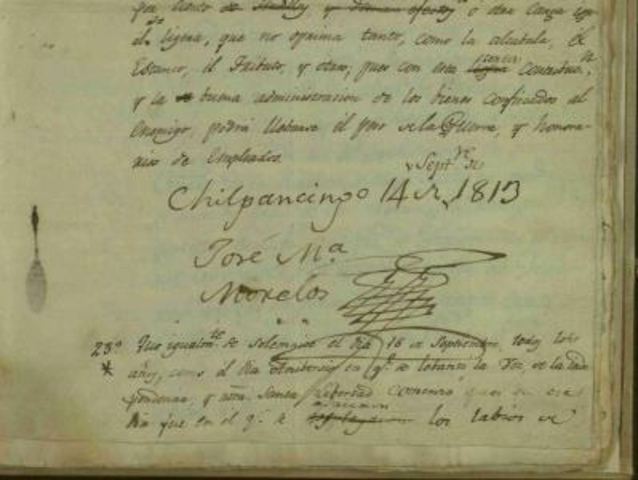 por ciento de Semillas y demas efectos ó otra Carga igual
el ligera, que no oprima tanto, como la alcabala, el
Estanco, el Tributo, y otros, pues con esta ligera Contribucn.
y la buena administracion de los bienes confiscados al
Enemigo, podrá llebarse el peso de la Guerra, y honora-
rios de Empleados.
Chilpancingo 14 de Septre. de 1813
José Ma.
Morelos
23º Que igualmte. se solemnice el dia 16 de Septiembre, todos los
años, como el dia Anibersario en qe. se lebantó la Voz, de la Inde
pendencia, y nra. Santa Libertad comenzó, pues en ese
Dia fue en el qe. se abrieron los labios de